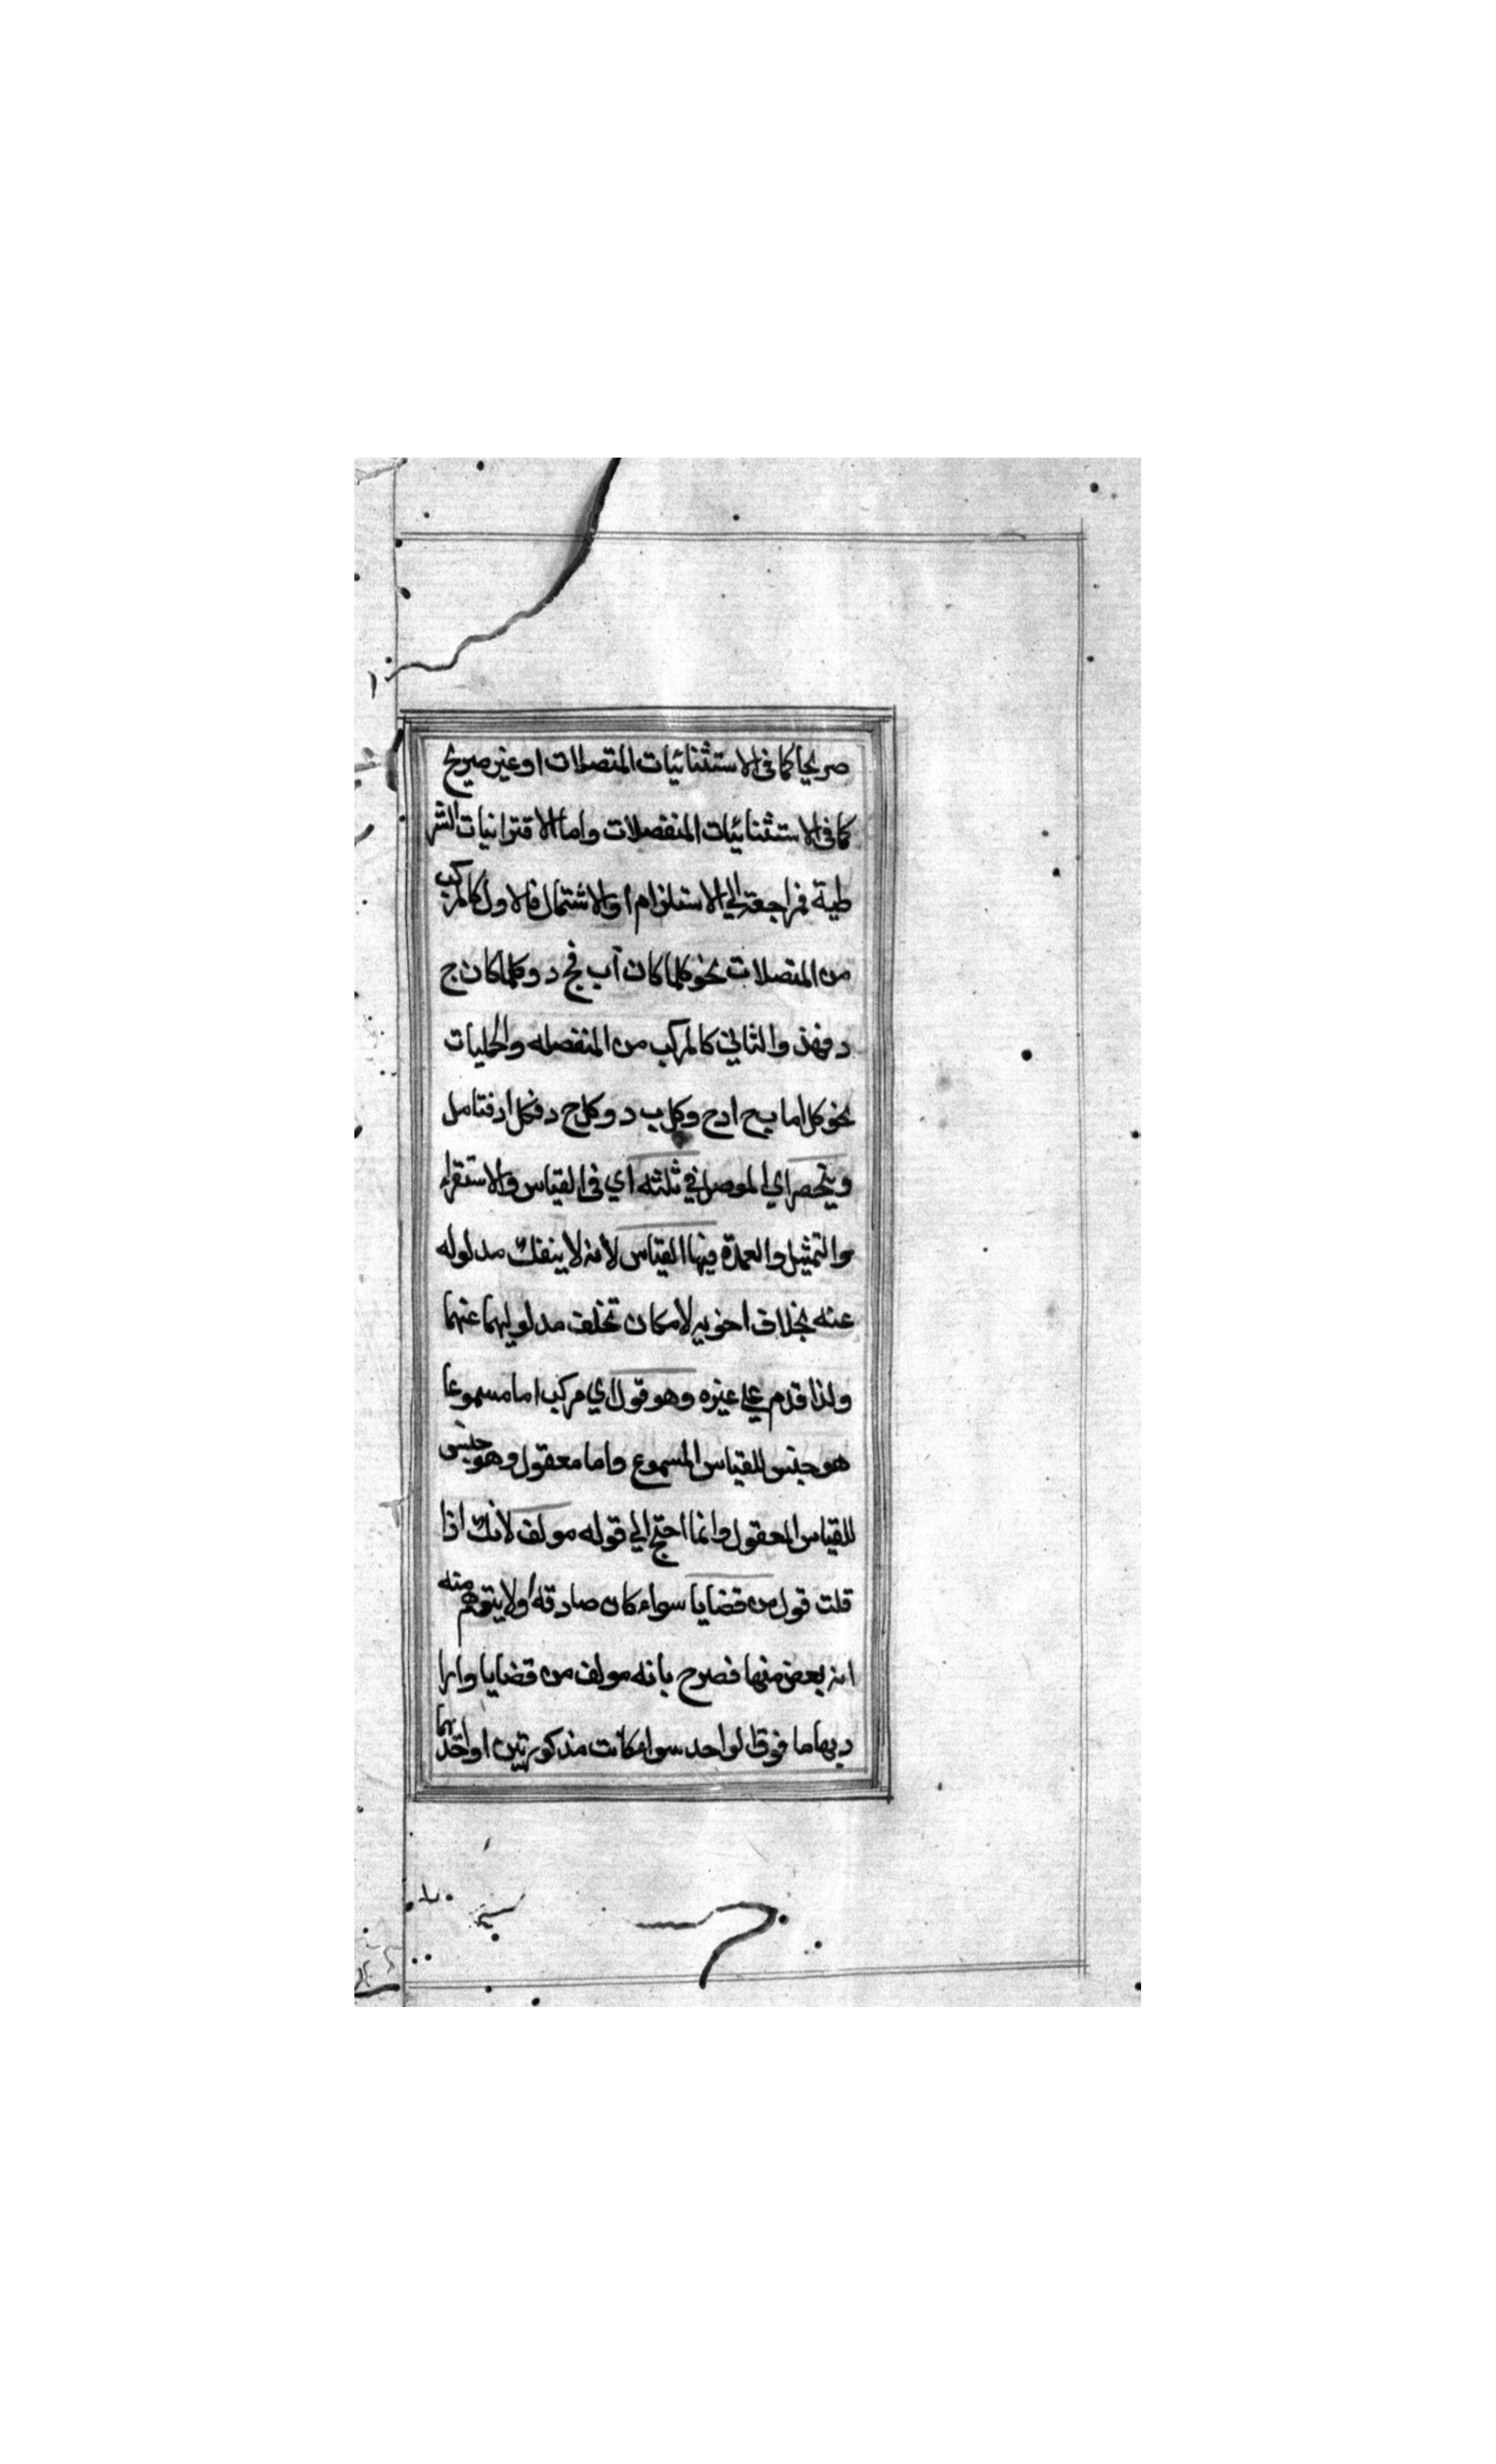 صريحا كما فى الاستثنائيات المتصلات او غير صريح
كما فى الاستثنائيات المنفصلات واما الاقترانيات الشر
طية فراجعة الي الاستلزام او الاشتمال فالاول كالمركب
من المتصلات نحو كلما كان آب فج د وكلما كان ج
د فهذ والثاني كالمركب من المنفصله والحمليات
نحو كل اما ب ج ادح وكل ب د وكل ج د فكل اد فتامل
وينحصر اي الموصل في ثلثه اي فى القياس والاستقراء
والتمثيل والعمدة فيها القياس لانه لا ينفك مدلوله
عنه بخلاف اخويه لامكان تخلف مدلوليهما عنهما
ولذا قدم علي غيره وهو قول اي مركب اما مسموعا
هو جنس للقياس المسموع واما معقول وهو جنس
للقياس المعقول وانما احتج الي قوله مولف لانك اذا
قلت قول من قضايا سواء كان صادقة اولا يتوهم منه
انه بعض منها فصرح بانه مولف من قضايا وارا
د بها ما فوق الواحد سواء كانت مذكورتين او احدهما